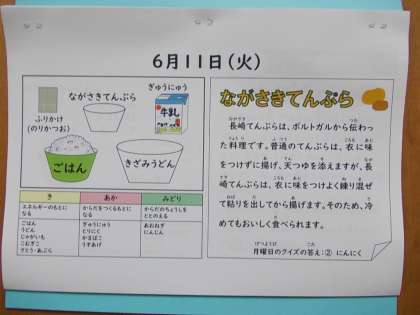 6月11日(火)
ながさきてんぷら
ぎゅうにゅう
牛乳
ふりかけ
(のりかつお)
ごはん
きざみうどん
き
あか
みどり
エネルギーのもとに
なる
からだをつくるもとに
なる
からだのちょうしを
ととのえる
ごはん
うどん
じゃがいも
こむぎこ
さとう・あぶら
ぎゅうにゅう
とりにく
かまぼこ
うすあげ
あおねぎ
にんじん
ながさきてんぷら
長崎てんぷらは、ポルトガルから伝わっ
た料理です。普通のてんぷらは、衣に味
をつけずに揚げ、天つゆを添えますが、長
崎てんぷらは、衣に味をつけよく練り混ぜ
て粘りを出してから揚げます。そのため、冷
めてもおいしく食べられます。
月曜日のクイズの答え:② にんにく